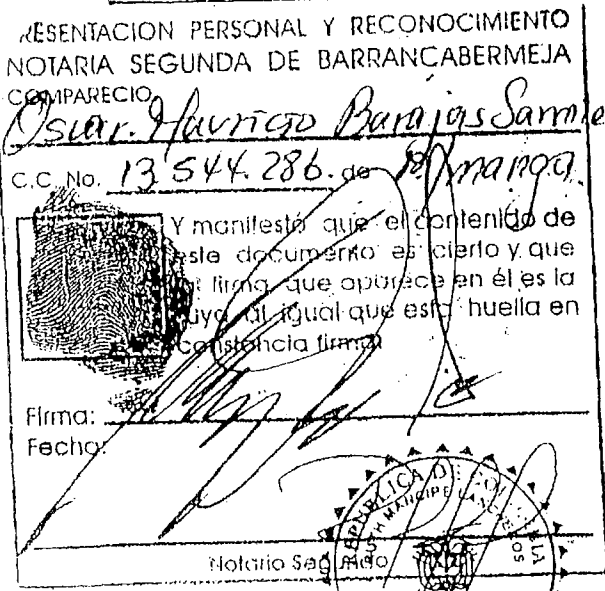 RESENTACION PERSONAL Y RECONOCIMIENTO
NOTARIA SEGUNDA DE BARRANCABERMEJA
COMPARECIO
Oscar Mauricio Barajas Sarmie
C.C. No. 13.544.286. de B/manga
Y manifestó que el contenido de
este documento es cierto y que
la firma que aparece en él es la
suya al igual que esta huella en
constancia firma
Firma:
Fecha:
REPUBLICA DE COLOMBIA
RUTH MANCIPE LANCHEROS
Notario Segundo